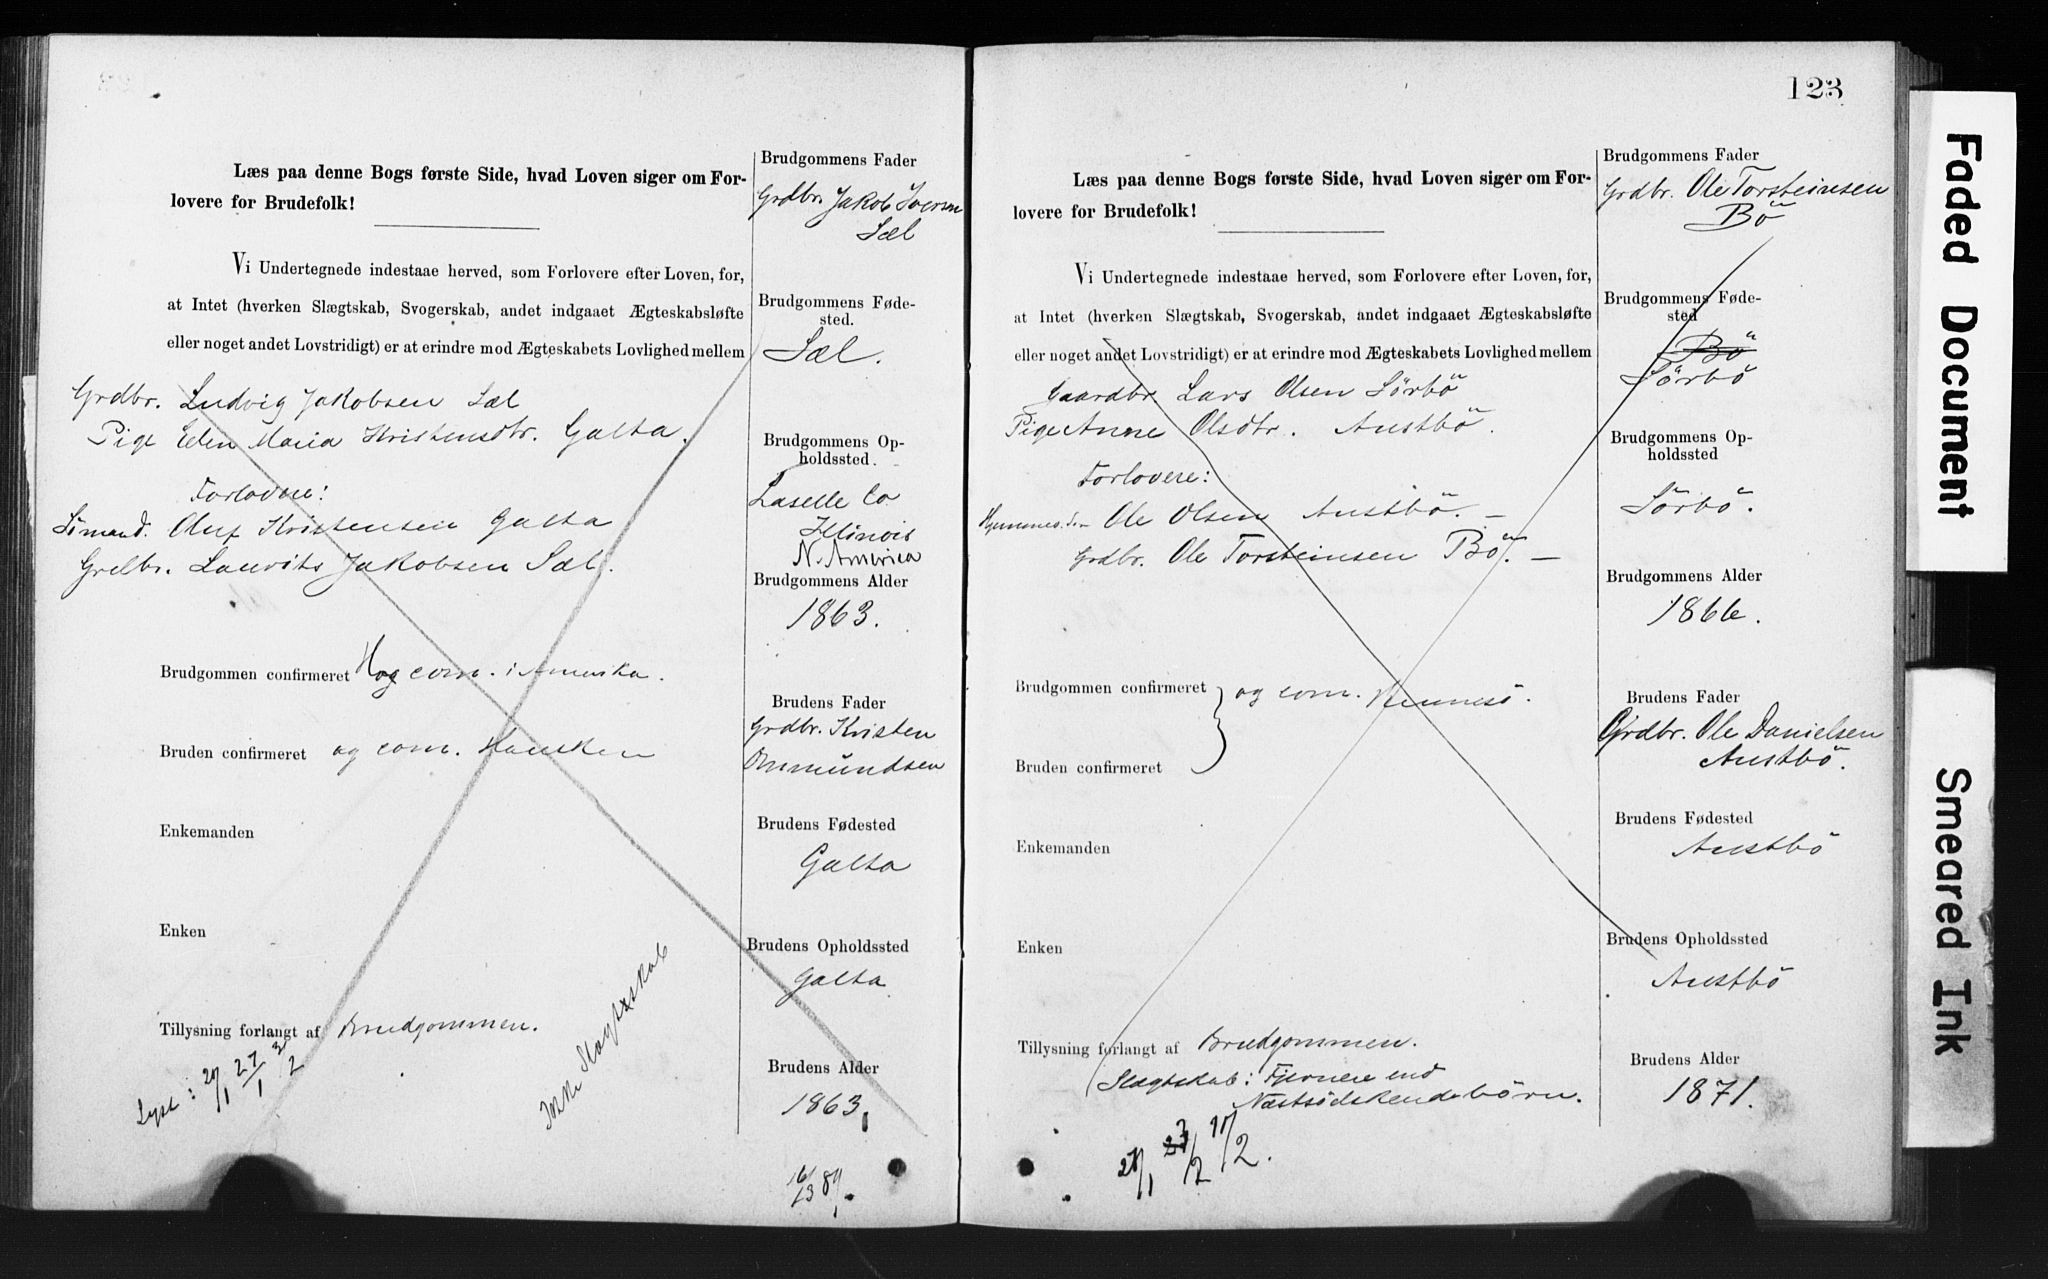 Læs paa denne Bogs første Side, hvad Loven siger om For-
lovere for Brudefolk!
Vi Undertegnede indestaae herved, som Forlovere efter Loven, for,
at Intet (hverken Slægtskab, Svogerskab, andet indgaaet Ægteskabsløfte
eller noget andet Lovstridigt) er at erindre mod Ægteskabets Lovlighed mellem
Grdbr. Ludvig Jakobsen Sæl
Pige Elen Maria Kristensdtr. Galta.
Forlovere:
Sømand. Oluf Kristensen Galta
Grdbr. Lauvits Jakobsen Sæl.
Brudgommen confirmeret og com. i Amerika.
Bruden confirmeret og com. Hausken
Enkemanden
Enken
Tillysning forlangt af Brudgommen.
Lyst: 20/1 27/1 3/2
Ikke Slægtskab
Brudgommens Fader
Grdbr. Jakob Iversen
Sæl
Brudgommens Føde-
sted.
Sæl.
Brudgommens Op-
holdssted.
Laselle Co
Illinois
N. America
Brudgommens Alder
1863.
Brudens Fader
Grdbr. Kristen
Ommundsen
Brudens Fødested
Galta
Brudens Opholdssted
Galta
Brudens Alder
1863.
123
Læs paa denne Bogs første Side, hvad Loven siger om For-
lovere for Brudefolk!
Vi Undertegnede indestaae herved, som Forlovere efter Loven, for,
at Intet (hverken Slægtskab, Svogerskab, andet indgaaet Ægteskabsløfte
eller noget andet Lovstridigt) er at erindre mod Ægteskabets Lovlighed mellem
Gaardbr. Lars Olsen Sörbö
Pige Anne Olsdtr. Austbö.
Forlovere:
Ole Olsen Austbö. —
Grdbr. Ole Torsteinsen Bö. —
Brudgommen confirmeret } og com. Rennesö.
Bruden confirmeret
Enkemanden
Enken
Tillysning forlangt af Brudgommen.
Slægtskab: Fjernere end
Næstsödskendebörn.
/2 /2.
Brudgommens Fader
Grdbr. Ole Torsteinsen
Bö
Brudgommens Føde-
sted
Bö
Sörbö
Brudgommens Op-
holdssted
Sörbö.
Brudgommens Alder
1866.
Brudens Fader
Grdbr. Ole Danielsen
Austbö.
Brudens Fødested
Austbö
Brudens Opholdssted
Austbö
Brudens Alder
1871.
Faded Document
Smeared Ink